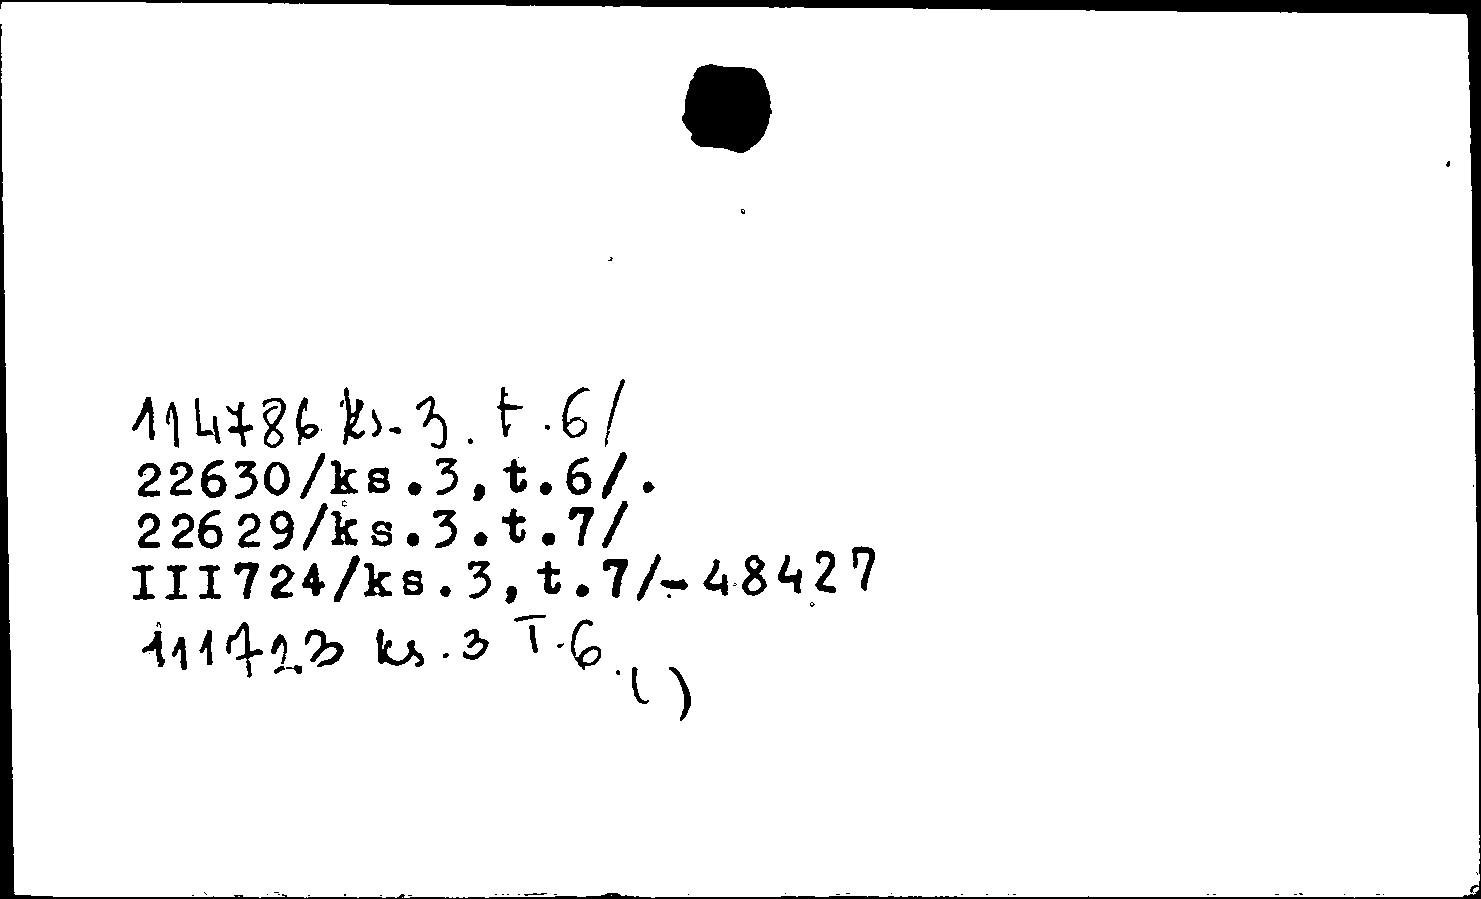 114786 ks. 3. t. 6/
22630/ks.3,t.6/.
22629/ks.3.t.7/
III724/ks.3,t.7/-48427
111723 ks. 3 T. 6
( )